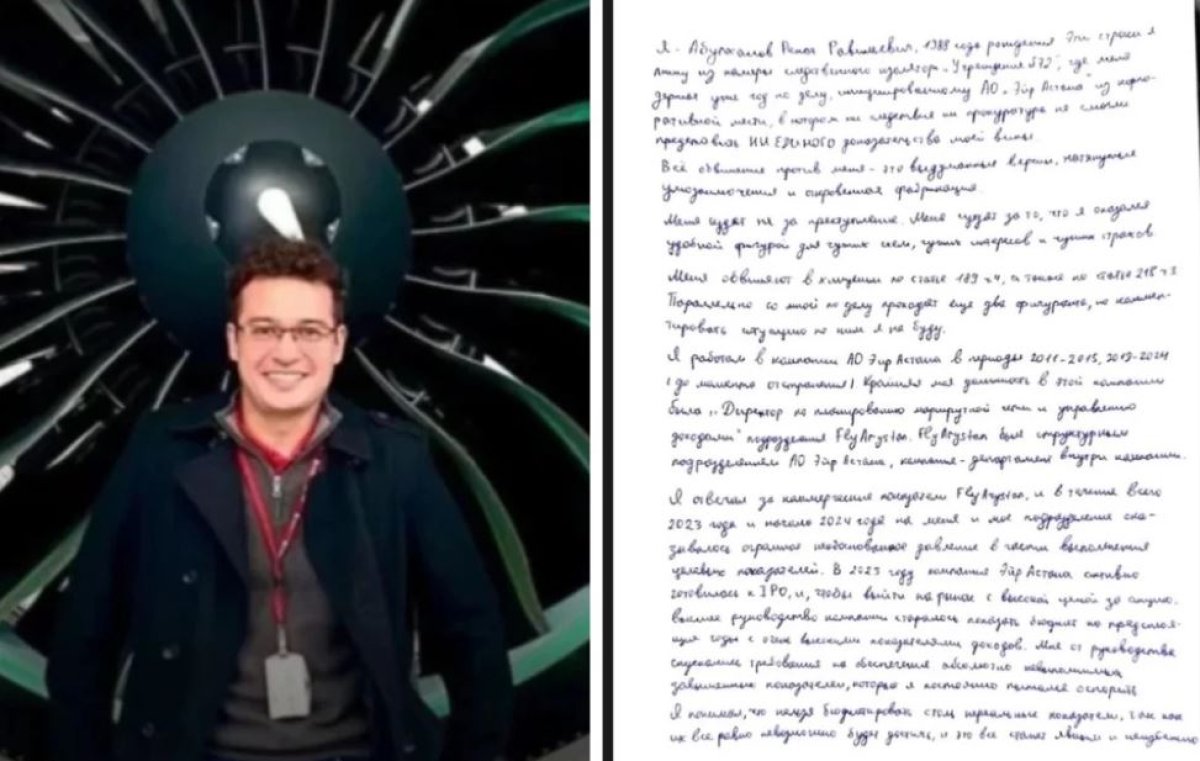 Я - Абулханов Ренат Равильевич, 1988 года рождения. Эти строки я
пишу из камеры следственного изолятора „Учреждения 572", где меня
держат уже год по делу, инициированному АО „Эйр Астана" из корпо-
ративной мести, в котором ни следствия ни прокуратура не смогли
предоставить НИ ЕДИНОГО доказательства моей вины.
Всё обвинение против меня - это выдуманные версии, натянутые
умозаключения и откровенная фабрикация.
Меня судят не за преступление. Меня судят за то, что я оказался
удобной фигурой для чужих схем, чужих интересов и чужих страхов
Меня обвиняют в хищении по статье 189 ч4, а также по статье 218 ч3
Параллельно со мной по делу проходят еще два фигуранта, но коммен-
тировать ситуацию по ним я не буду.
Я работал в компании АО Эйр Астана в периоды 2011-2015, 2019-2024
(до момента отстранения). Крайняя моя должность в этой компании
была „Директор по планированию маршрутной сети и управлению
доходами" подразделения FlyArystan. FlyArystan был структурным
подразделением АО Эйр Астана, компания - департамент внутри компании.
Я отвечал за коммерческие показатели FlyArystan, и в течение всего
2023 года и начало 2024 года на меня и мое подразделение ока-
зывалось огромное необоснованное давление в части выполнения
целевых показателей. В 2023 году компания Эйр Астана активно
готовилась к IPO, и, чтобы выйти на рынок с высокой ценой за акцию,
высшее руководство компании старалось показать бюджет на предстоя-
щие годы с очень высокими показателями доходов. Мне от руководства
спускались требования на обеспечение абсолютно невыполнимых
завышенных показателей, которые я постоянно пытался оспорить
Я понимал, что нельзя бюджетировать столь нереальные показатели, так как
их все равно невозможно будет достичь, и это все станет явным и неизбежно